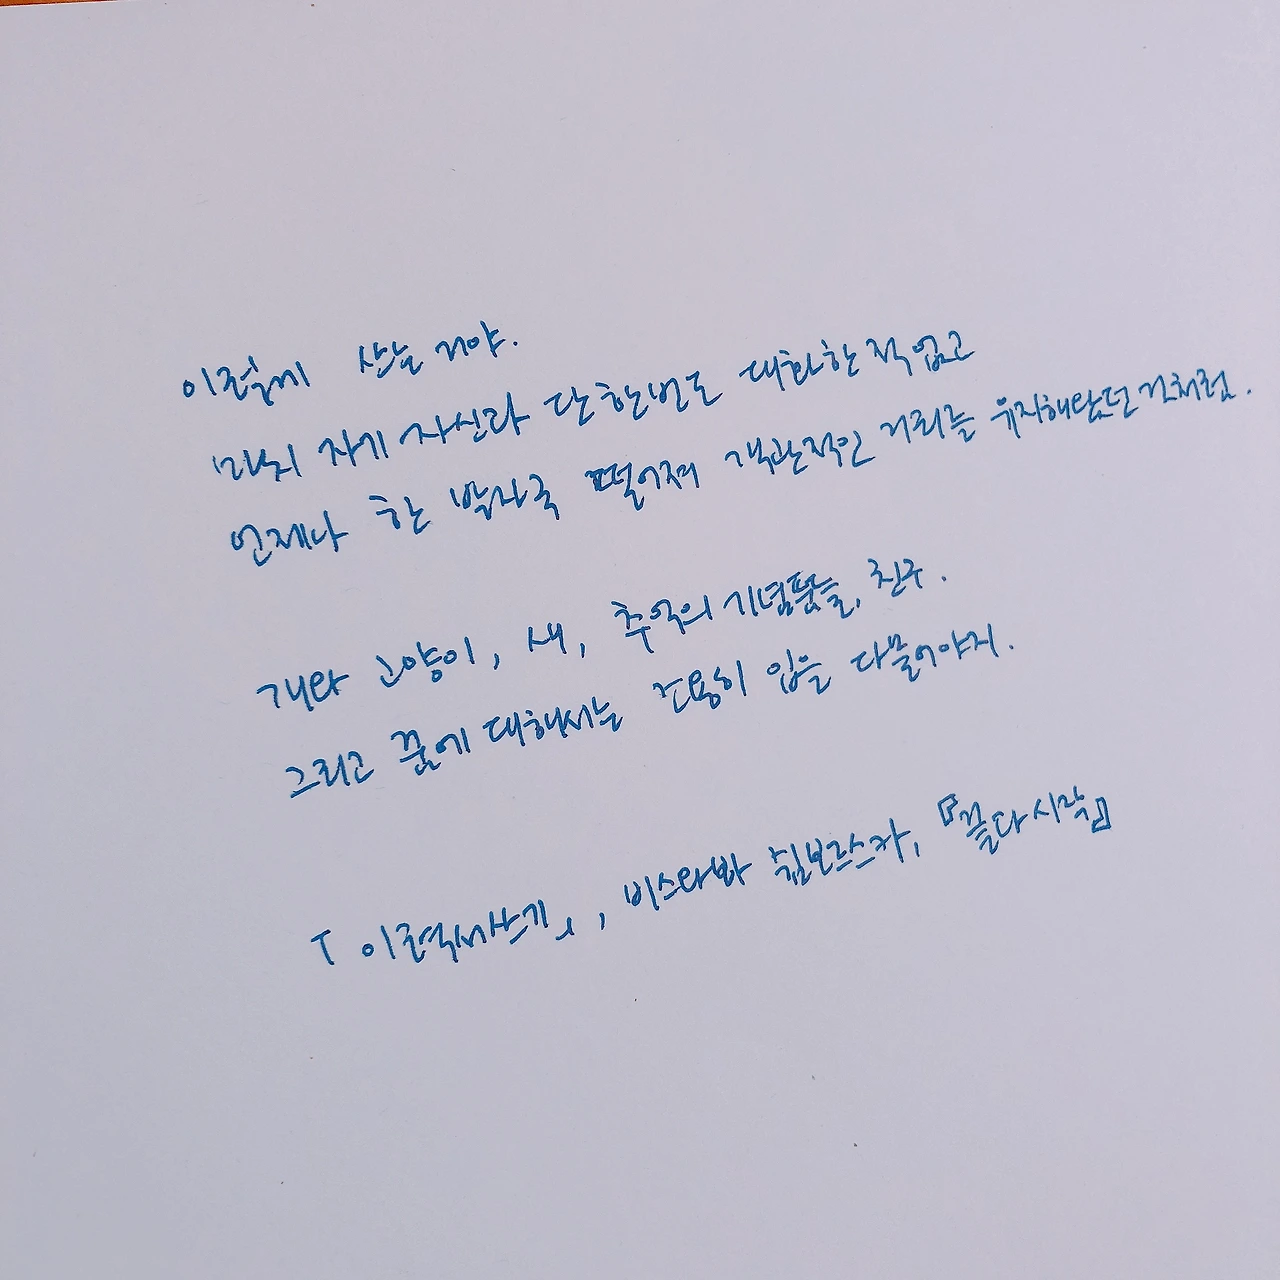 이렇게 쓰는 거야.
마치 자기 자신과 단 한번도 대화한 적 없고
언제나 한 발자국 떨어져 객관적인 거리를 유지해왔던 것처럼.
개와 고양이, 새, 추억의 기념품들, 친구.
그리고 꿈에 대해서는 조용히 입을 다물어야지.
「이력서 쓰기」, 비스와봐 쉼보르스카, 『끝과 시작』